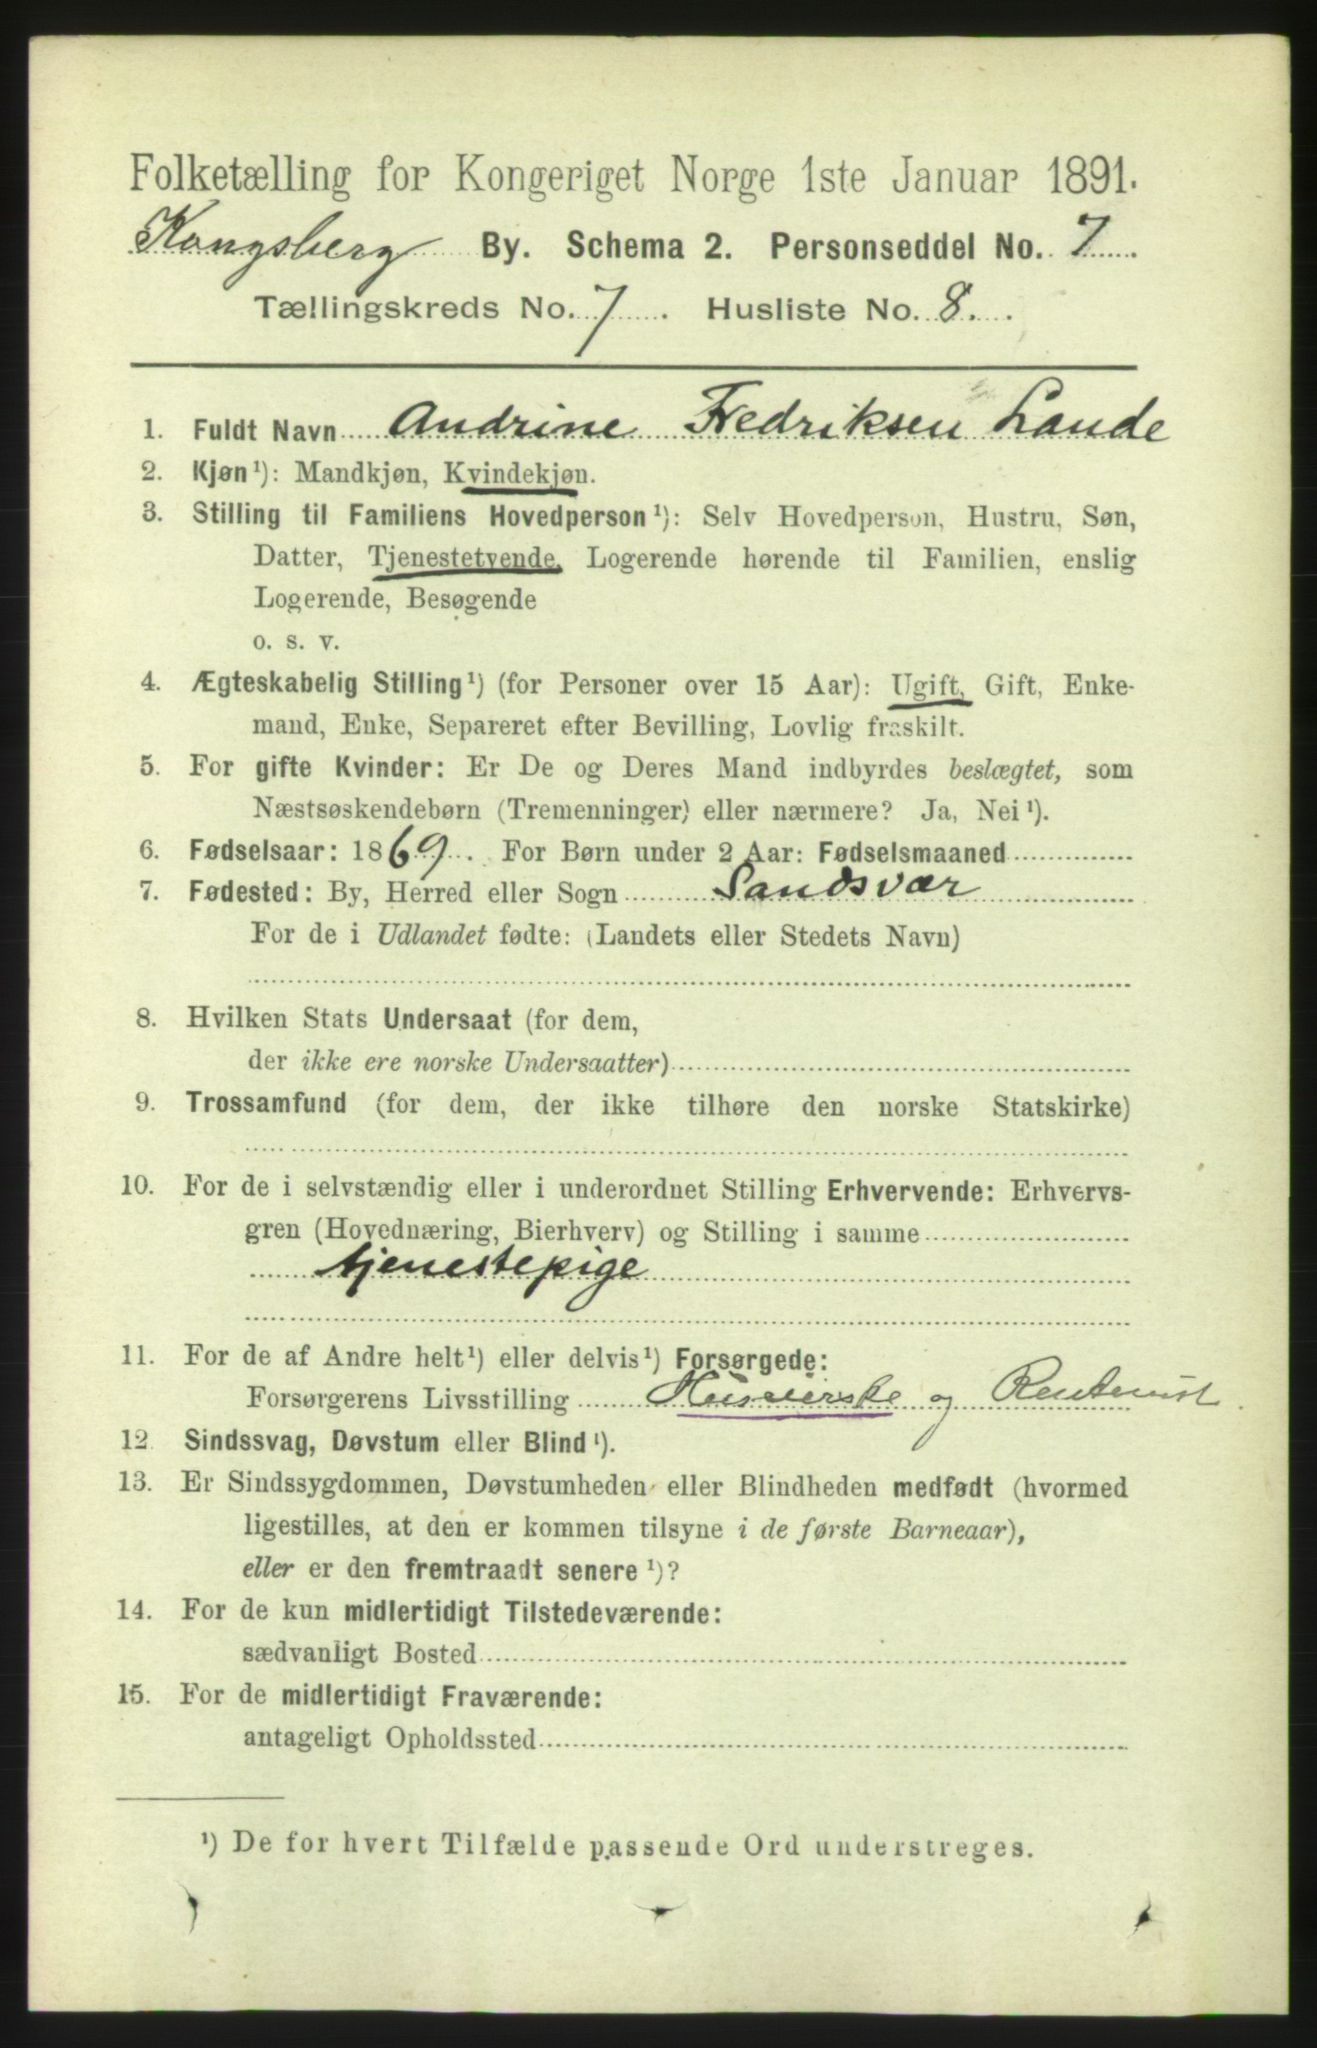 Folketælling for Kongeriget Norge 1ste Januar 1891.
Kongsberg By. Schema 2. Personseddel No. 7
Tællingskreds No. 7. Husliste No. 8.
1. Fuldt Navn Andrine Fredriksen Lande
2. Kjøn¹): Mandkjøn, Kvindekjøn.
3. Stilling til Familiens Hovedperson¹): Selv Hovedperson, Hustru, Søn,
Datter, Tjenestetyende, Logerende hørende til Familien, enslig
Logerende, Besøgende
o. s. v.
4. Ægteskabelig Stilling¹) (for Personer over 15 Aar): Ugift, Gift, Enke-
mand, Enke, Separeret efter Bevilling, Lovlig fraskilt.
5. For gifte Kvinder: Er De og Deres Mand indbyrdes beslægtet, som
Næstsøskendebørn (Tremenninger) eller nærmere? Ja, Nei¹).
6. Fødselsaar: 1869. For Børn under 2 Aar: Fødselsmaaned
7. Fødested: By, Herred eller Sogn Sandsvær
For de i Udlandet fødte: (Landets eller Stedets Navn)
8. Hvilken Stats Undersaat (for dem,
der ikke ere norske Undersaatter)
9. Trossamfund (for dem, der ikke tilhøre den norske Statskirke)
10. For de i selvstændig eller i underordnet Stilling Erhvervende: Erhvervs-
gren (Hovednæring, Bierhverv) og Stilling i samme
tjenestepige
11. For de af Andre helt¹) eller delvis¹) Forsørgede:
Forsørgerens Livsstilling Huseierske og Rentenist
12. Sindssvag, Døvstum eller Blind¹).
13. Er Sindssygdommen, Døvstumheden eller Blindheden medfødt (hvormed
ligestilles, at den er kommen tilsyne i de første Barneaar),
eller er den fremtraadt senere¹)?
14. For de kun midlertidigt Tilstedeværende:
sædvanligt Bosted
15. For de midlertidigt Fraværende:
antageligt Opholdssted
¹) De for hvert Tilfælde passende Ord understreges.